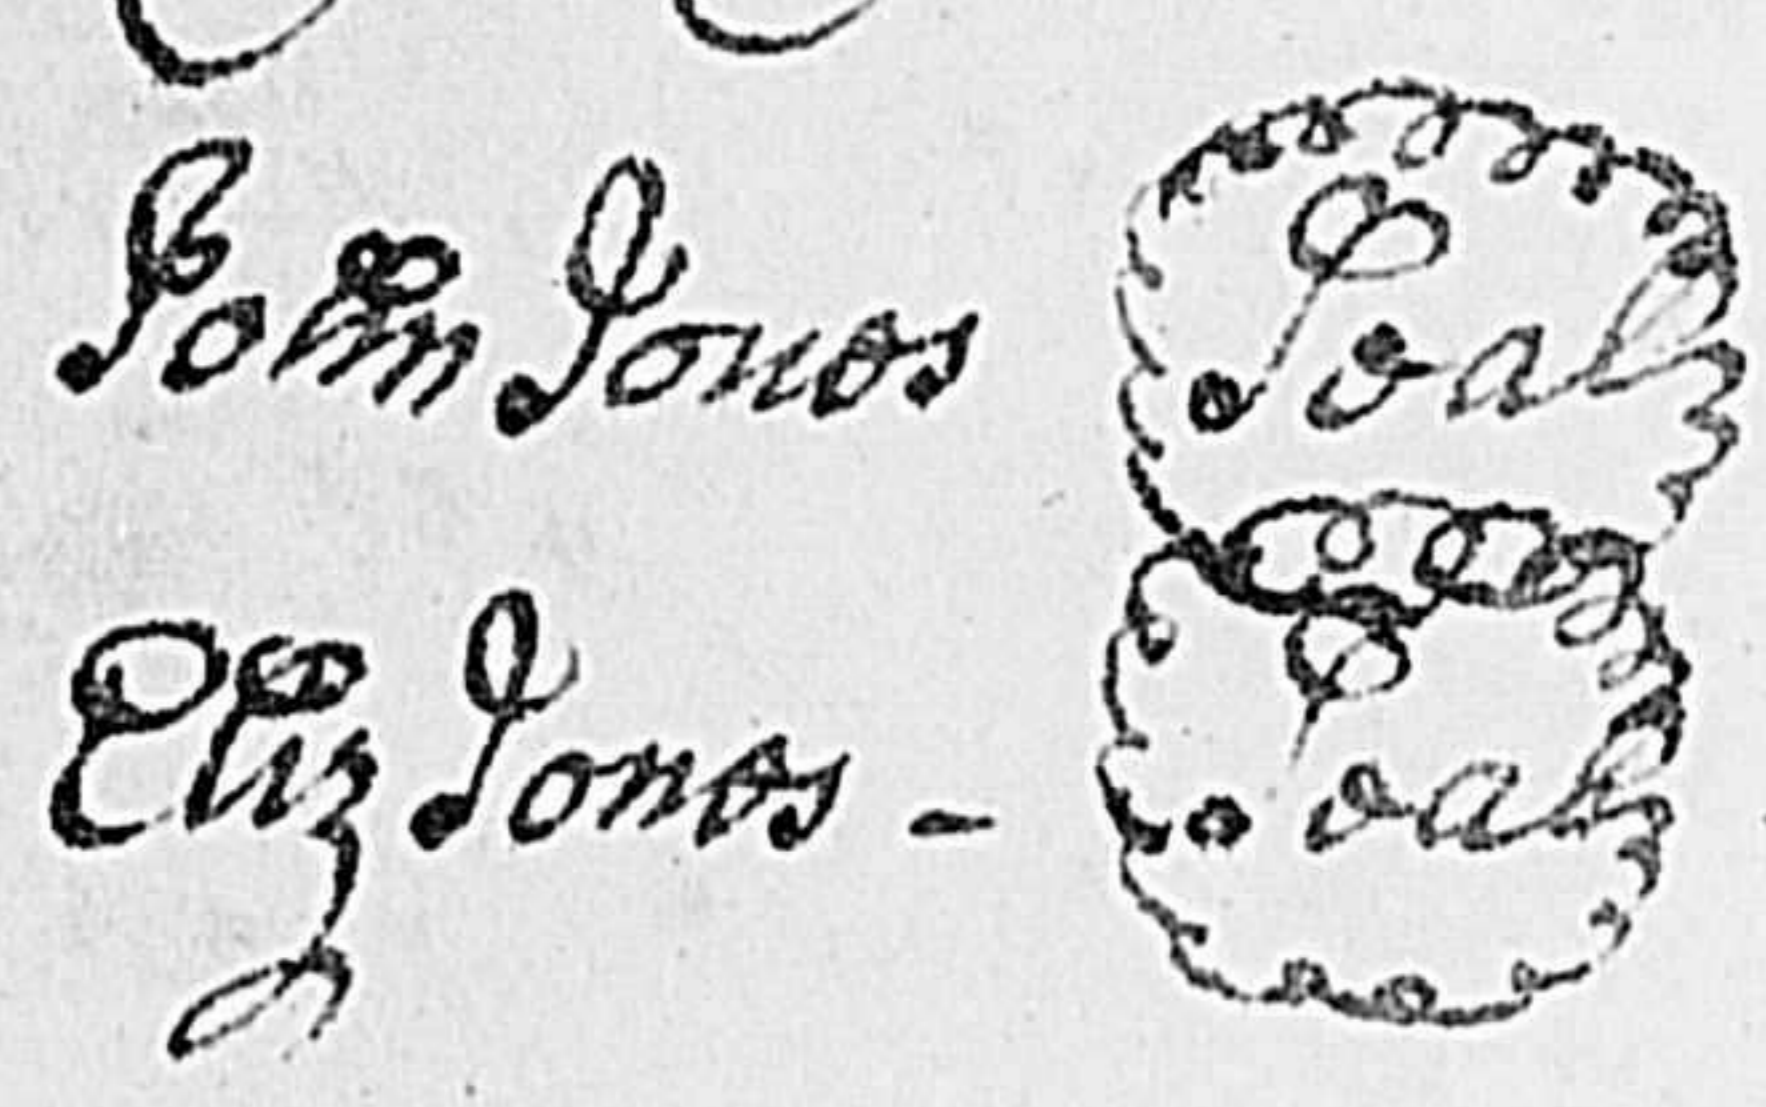 John Jones Seal
Eliz Jones - Seal